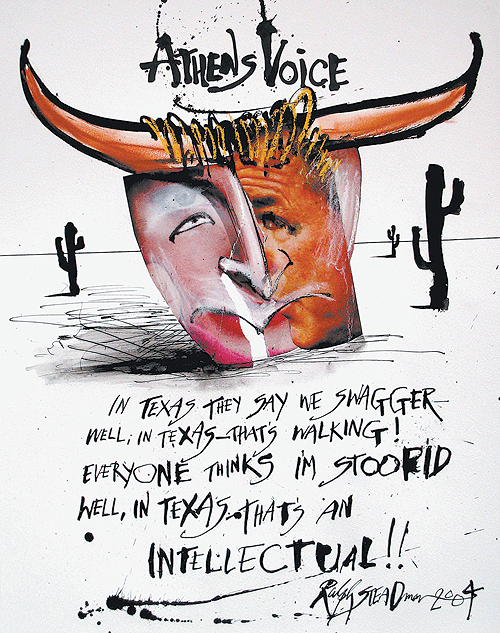 ATHENS VOICE
IN TEXAS THEY SAY WE SWAGGER
WELL, IN TEXAS–THAT'S WALKING!
EVERYONE THINKS I'M STOOPID
WELL, IN TEXAS–THAT'S AN
INTELLECTUAL!!
Ralph STEADman 2004